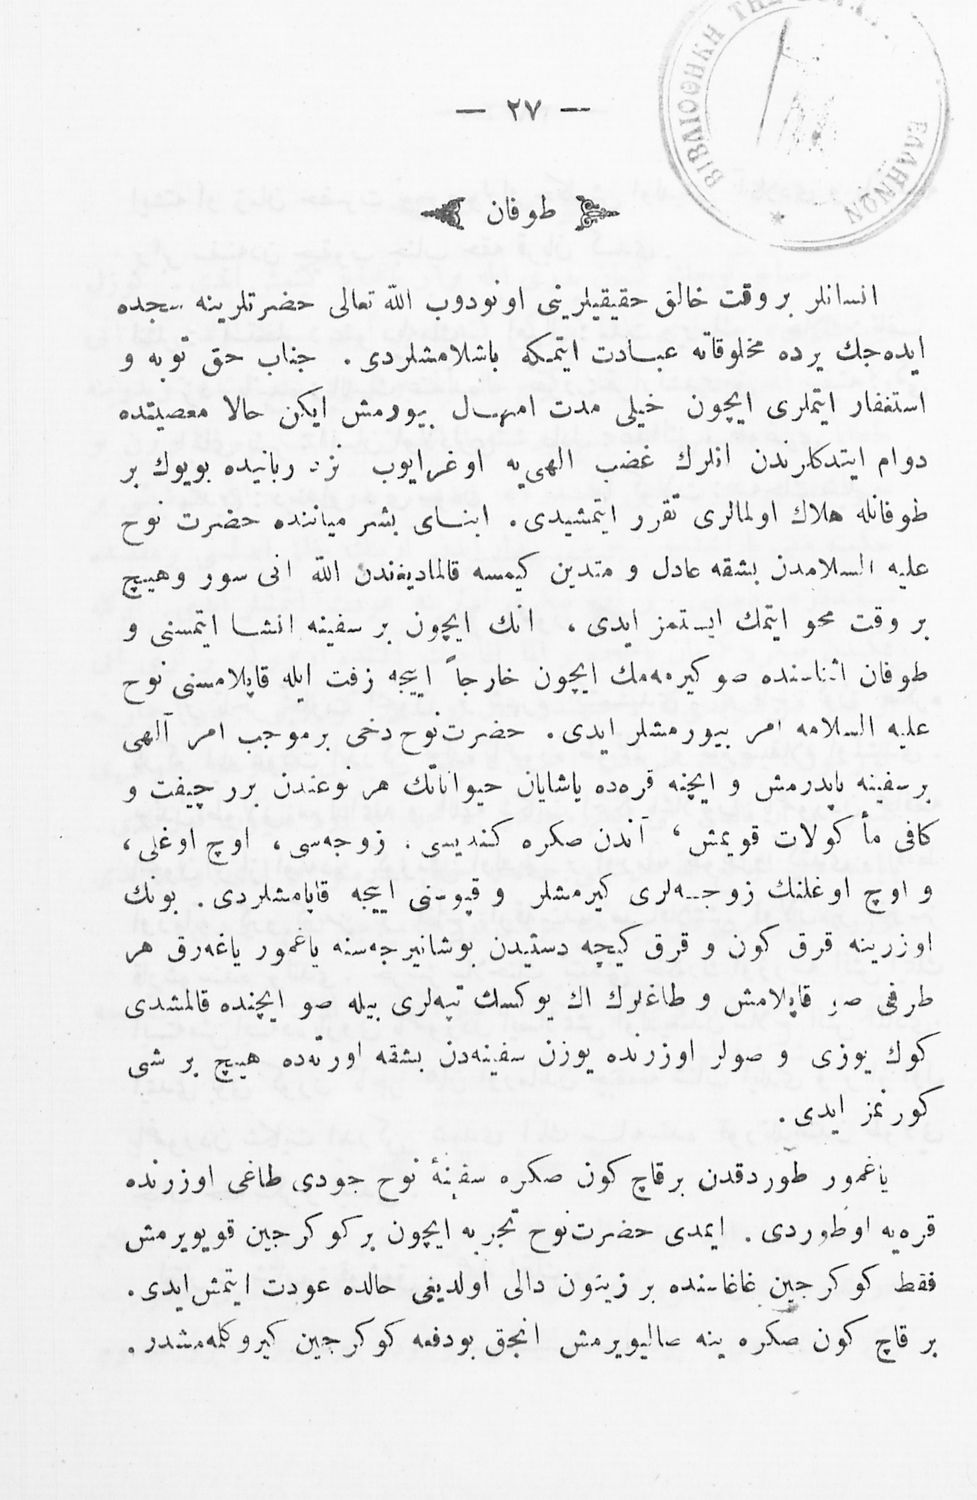 — ٢٧ —
طوفان
انسانلر بر وقت خالق حقیقیلرینی اونودوب الله تعالی حضرتلرینه سجده
ایده‌جك یرده مخلوقاته عبادت ایتمكه باشلامشلردی. جناب حق توبه و
استغفار ایتملری ایچون خیلی مدت امهال بیورمش ایكن حالا معصیتده
دوام ایتدكلرندن انلرك غضب الهی‌یه اوغرایوب نزد ربانیده بویوك بر
طوفانله هلاك اولمالری تقرر ایتمشیدی. ابنای بشر میاننده حضرت نوح
علیه السلامدن بشقه عادل و متدین كیمسه قالمادیغندن الله انی سور وهیچ
بر وقت محو ایتمك ایستمز ایدی. انك ایچون بر سفینه انشا ایتمسنی و
طوفان اثناسنده صو كیرمه‌مك ایچون خارجاً اییجه زفت ایله قاپلامسنی نوح
علیه السلامه امر بیورمشلر ایدی. حضرت نوح دخی برموجب امر آلهی
برسفینه یاپدرمش و ایچنه قره‌ده یاشایان حیواناتك هر نوعندن برر چیفت و
كافی مأكولات قویمش، آندن صكره كندیسی، زوجه‌سی، اوچ اوغلی،
و اوچ اوغلنك زوجه‌لری كیرمشلر و قپوسنی اییجه قاپامشلردی. بونك
اوزرینه قرق كون و قرق كیچه دستیدن بوشانیرجه‌سنه یاغمور یاغه‌رق هر
طرفی صو قاپلامش و طاغلرك اك یوكسك تپه‌لری بیله صو ایچنده قالمشدی
كوك یوزی و صولر اوزرنده یوزن سفینه‌دن بشقه اورته‌ده هیچ بر شی
كورنمز ایدی.
یاغمور طوردقدن برقاچ كون صكره سفینهٔ نوح جودی طاغی اوزرنده
قره‌یه اوطوردی. ایمدی حضرت نوح تجربه ایچون بر كوكرجین قویویرمش
فقط كوكرجین غاغاسنده بر زیتون دالی اولدیغی حالده عودت ایتمش ایدی.
بر قاچ كون صكره ینه صالیویرمش انجق بودفعه كوكرجین كیرو كلمه‌مشدر.
ΒΙΒΛΙΟΘΗΚΗ ΤΗΣ
ΕΛΛΗΝΩΝ